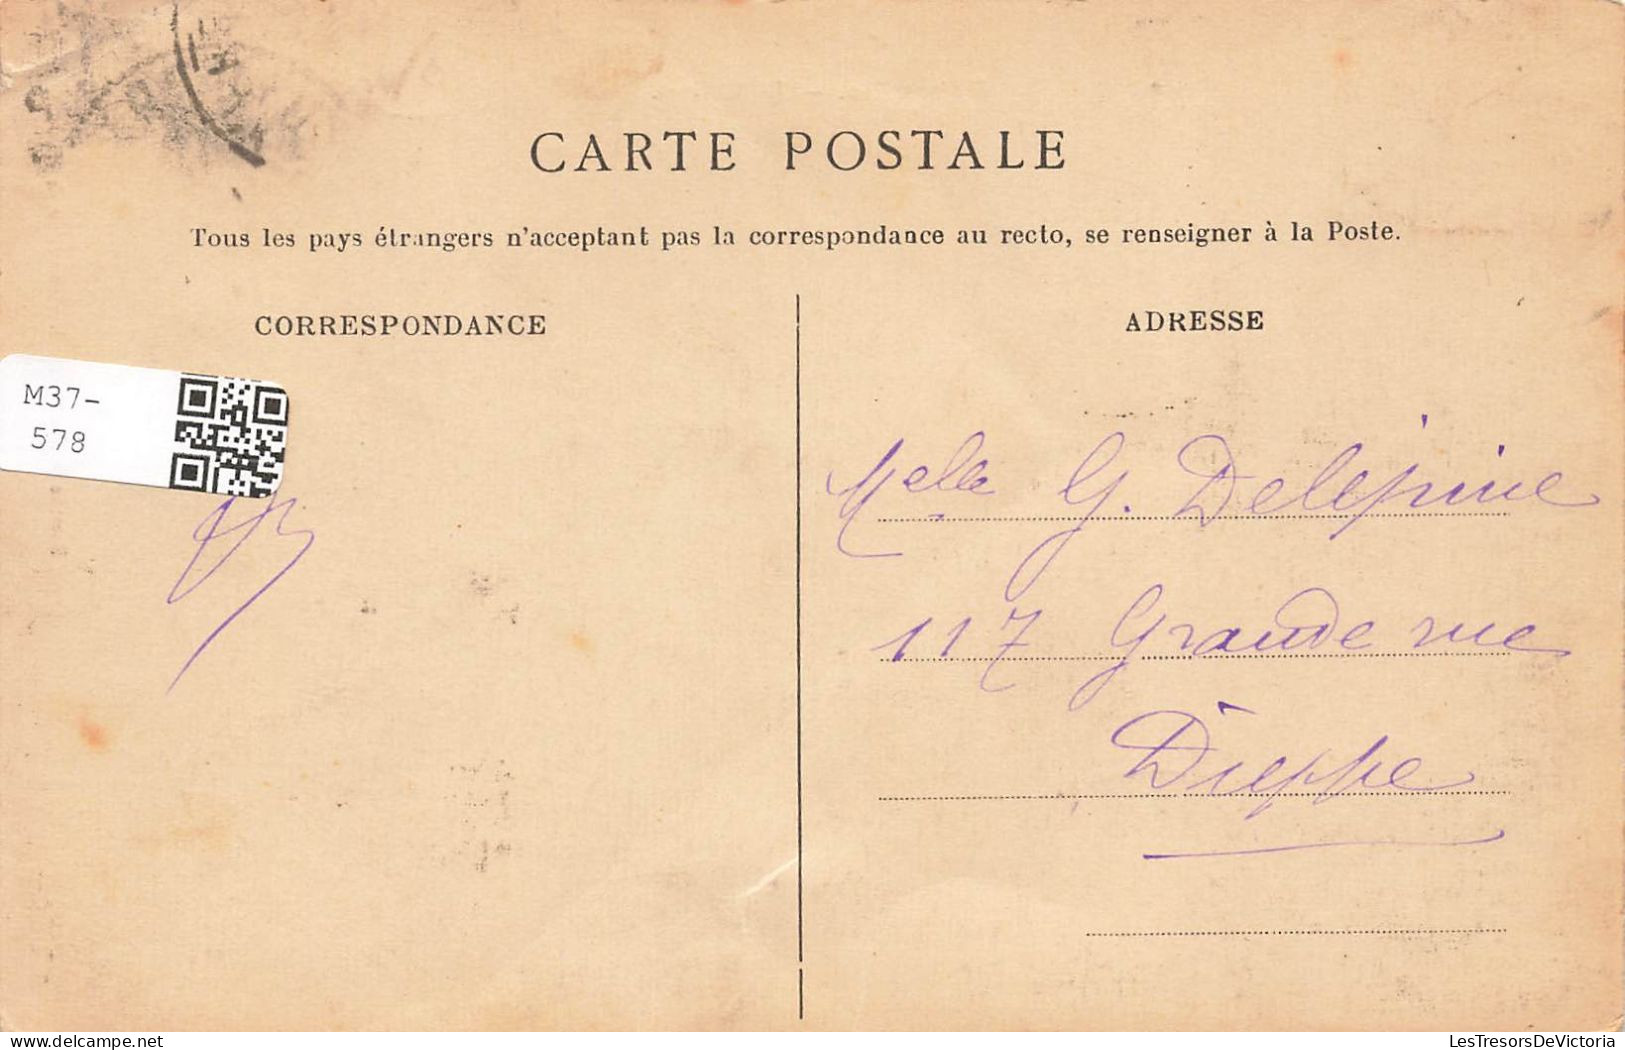 CARTE POSTALE
Tous les pays étrangers n'acceptant pas la correspondance au recto, se renseigner à la Poste.
CORRESPONDANCE
ADRESSE
M37-
578
Melle G. Delépine
117 Grande rue
Dieppe
delcampe.net
LesTresorsDeVictoria